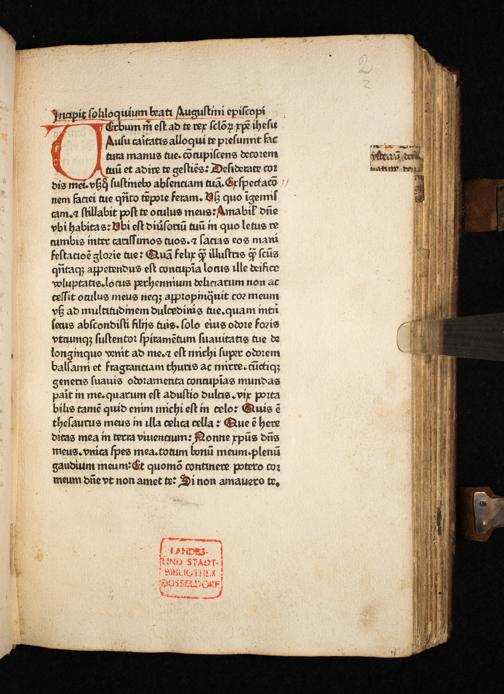 2
2
Incipit soliloquium beati Augustini episcopi
Uerbum m̄ est ad te rex sclōꝝ xp̄e ihesu
Ausu caritatis alloqui te presumit fac
tura manus tue. cōcupiscens decorem
tuū et adire te gestiēs: Desiderate cor
dis mei. vsq̄ꝫ sustinebo absenciam tuā. Expectacō
nem faciei tue qn̄to tēpore feram. Vsq̄ quo igemis
cam. ⁊ stillabit post te oculus meus: Amabil' dn̄e
vbi habitas: Vbi est diūsoriū tuū in quo letus re
cumbis inter carissimos tuos. ⁊ sacias eos mani
festacioē glorie tue: Quā felix q̄ꝫ illustris q̄ꝫ sctūs
qn̄taqꝫ appetendus est concupīa locus ille deifice
voluptatis. locus perhennium deliciarum non ac
cessit oculus meus neqꝫ appropinq̄uit cor meum
vsq̄ꝫ ad multitudinem dulcedinis tue. quam intri
secus abscondisti filijs tuis. solo eius odore foris
vtcumqꝫ sustentor spiramentum suauitatis tue de
longinquo venit ad me. ⁊ est michi super odorem
balsami et fragranciam thuris ac mirre. cūctiqꝫ
generis suauis odoramenta concupīas mundas
parit in me. quarum est adustio dulcis. vix porta
bilis tamē quid enim michi est in celo: Quis ē
thesaurus meus in illa celica cella: Que ē here
ditas mea in terra viuencium: Nonne xpūs dn̄s
meus. vnica spes mea. totum bonū meum. plenū
gaudium meum: Et quomō continere potero cor
meum dn̄e vt non amet te: Si non amauero te.
LANDES-
UND STADT-
BIBLIOTHEK
DÜSSELDORF